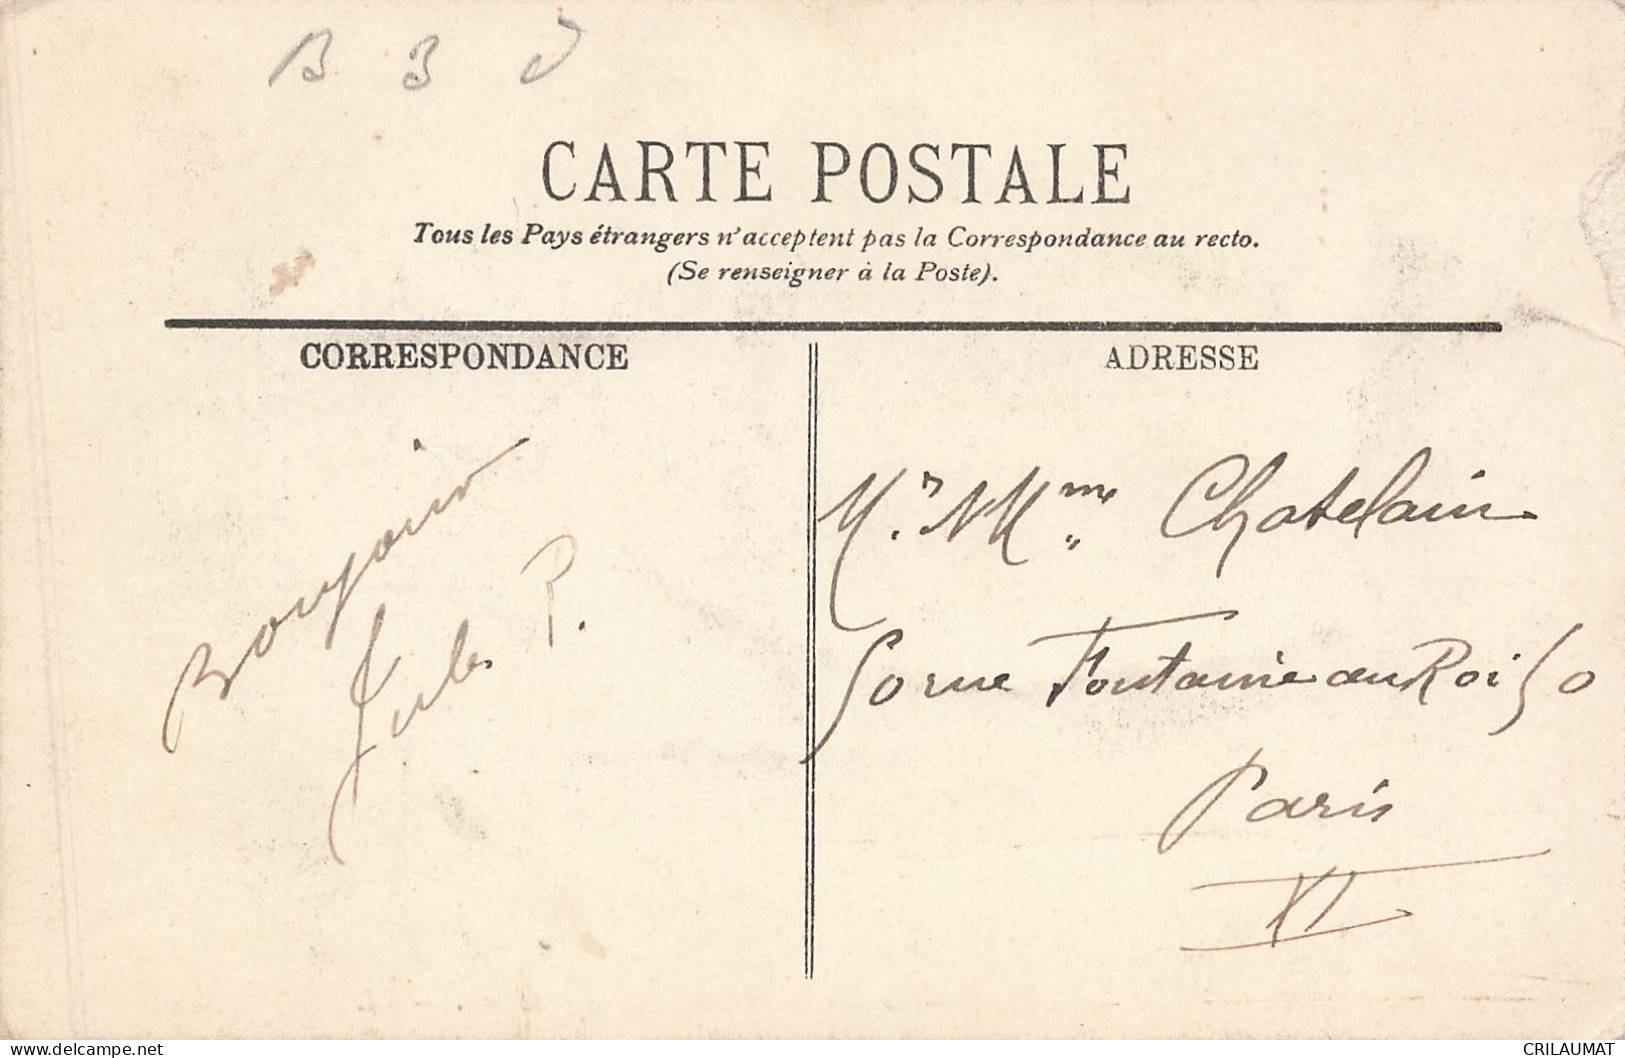 B 3
CARTE POSTALE
Tous les Pays étrangers n'acceptent pas la Correspondance au recto.
(Se renseigner à la Poste).
CORRESPONDANCE
Bonjour
Jules P.
ADRESSE
Chatelain
50 rue Fontaine au Roi 50
Paris
XI
www.delcampe.net
CRILAUMAT